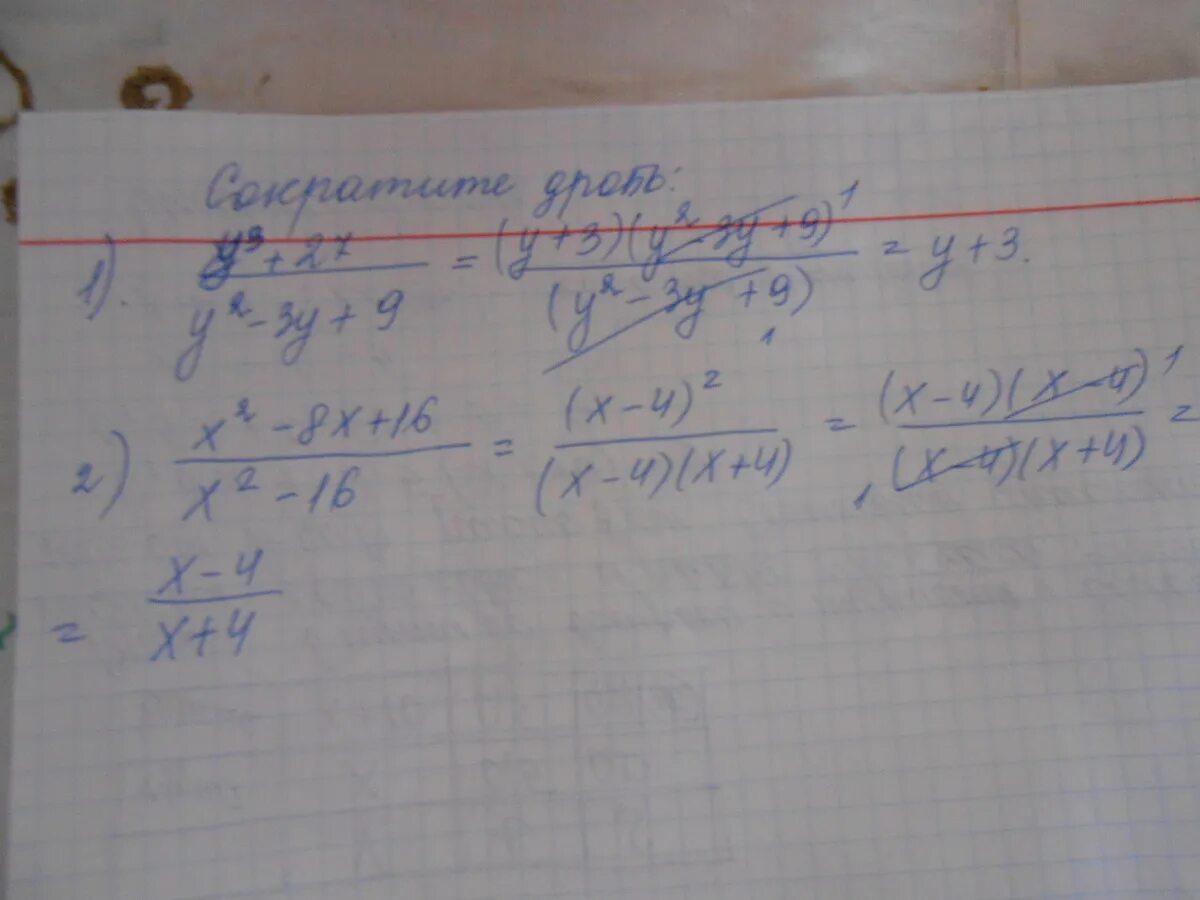 Сократите дробь:
1). (y³ + 27)/(y² - 3y + 9) = ((y + 3)(y² - 3y + 9) 1)/((y² - 3y + 9) 1) = y + 3.
2) (x² - 8x + 16)/(x² - 16) = (x - 4)²/((x - 4)(x + 4)) = ((x - 4)(x - 4) 1)/(1 (x - 4)(x + 4)) =
= (x - 4)/(x + 4)